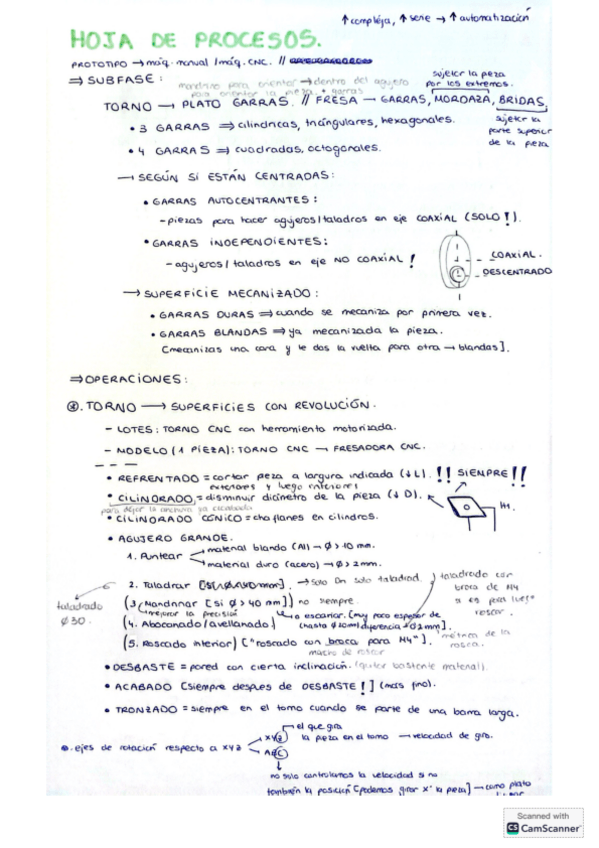 ↑ compleja, ↑ serie → ↑ automatización
HOJA DE PROCESOS.
PROTOTIPO → máq. manual / máq. CNC. //
⇒ SUBFASE:
mandrino para orientar → dentro del agujero
para orientar la pieza + garras
sujetar la pieza
por los extremos.
TORNO → PLATO GARRAS. // FRESA → GARRAS, MORDAZA, BRIDAS,
sujetar la
parte superior
de la pieza
• 3 GARRAS ⇒ cilíndricas, triángulares, hexagonales.
• 4 GARRAS ⇒ cuadradas, octogonales.
→ SEGÚN SI ESTÁN CENTRADAS:
• GARRAS AUTOCENTRANTES:
- piezas para hacer agujeros/taladros en eje COAXIAL (SOLO!).
• GARRAS INDEPENDIENTES:
- agujeros/taladros en eje NO COAXIAL!
COAXIAL.
DESCENTRADO
→ SUPERFICIE MECANIZADO:
• GARRAS DURAS ⇒ cuando se mecaniza por primera vez.
• GARRAS BLANDAS ⇒ ya mecanizada la pieza.
[mecanizas una cara y le das la vuelta para otra → blandas].
⇒ OPERACIONES:
TORNO → SUPERFICIES CON REVOLUCIÓN.
- LOTES: TORNO CNC con herramienta motorizada.
- MODELO (1 PIEZA): TORNO CNC → FRESADORA CNC.
• REFRENTADO = cortar pieza a largura indicada (↓L). !! SIEMPRE !!
exteriores y luego interiores
• CILINDRADO = disminuir diámetro de la pieza (↓D).
para dejar la anchura ya acabada
• CILINDRADO CÓNICO = chaflanes en cilindros.
• AGUJERO GRANDE.
1. Puntear
material blando (Al) → ø > 10 mm.
material duro (acero) → ø > 2mm.
2. Taladrar → Solo
taladrado con
broca de M4
si es para luego
roscar.
taladrado
ø 30.
(3. Mandrinar [si ø > 40 mm]) no siempre.
mejorar la precisión
o escariar. [muy poco espesor de
(4. Abocardado/avellanado)
(5. Roscado interior) ["roscado con broca para M4"].
métrica de la
rosca.
macho de roscar
• DESBASTE = pared con cierta inclinación. (quitar bastante material).
• ACABADO [siempre después de DESBASTE!] (más fino).
• TRONZADO = siempre en el torno cuando se parte de una barra larga.
el que gira
ejes de rotación respecto a XYZ
XYZ
la pieza en el torno → velocidad de giro.
ABC
no solo controlamos la velocidad si no
también la posición [podemos girar x° la pieza] → como plato
Scanned with
CS CamScanner